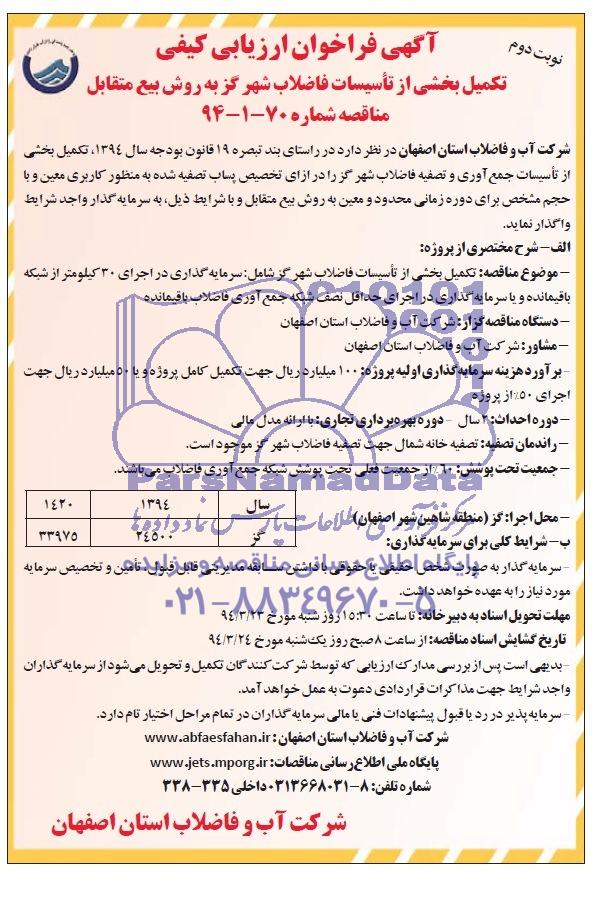 نوبت دوم
آگهی فراخوان ارزیابی کیفی
تکمیل بخشی از تأسیسات فاضلاب شهر گز به روش بیع متقابل
مناقصه شماره ۷۰-۱-۹۴
شرکت آب و فاضلاب استان اصفهان در نظر دارد در راستای بند تبصره ۱۹ قانون بودجه سال ۱۳۹۴، تکمیل بخشی
از تأسیسات جمع‌آوری و تصفیه فاضلاب شهر گز را در ازای تخصیص پساب تصفیه شده به منظور کاربری معین و با
حجم مشخص برای دوره زمانی محدود و معین به روش بیع متقابل و با شرایط ذیل، به سرمایه‌گذار واجد شرایط
واگذار نماید.
الف- شرح مختصری از پروژه:
- موضوع مناقصه: تکمیل بخشی از تأسیسات فاضلاب شهر گز شامل: سرمایه‌گذاری در اجرای ۳۰ کیلومتر از شبکه
باقیمانده و یا سرمایه‌گذاری در اجرای حداقل نصف شبکه جمع‌آوری فاضلاب باقیمانده
- دستگاه مناقصه‌گزار: شرکت آب و فاضلاب استان اصفهان
- مشاور: شرکت آب و فاضلاب استان اصفهان
- برآورد هزینه سرمایه‌گذاری اولیه پروژه: ۱۰۰ میلیارد ریال جهت تکمیل کامل پروژه و یا ۵۰ میلیارد ریال جهت
اجرای ۵۰٪ از پروژه
- دوره احداث: ۲ سال - دوره بهره‌برداری تجاری: با ارائه مدل مالی
- راندمان تصفیه: تصفیه خانه شمال جهت تصفیه فاضلاب شهر گز موجود است.
- جمعیت تحت پوشش: ۶۰٪ از جمعیت فعلی تحت پوشش شبکه جمع‌آوری فاضلاب می‌باشند.
سال ۱۳۹۴ ۱۴۲۰
گز ۲۴۵۰۰ ۳۳۹۷۵
- محل اجرا: گز (منطقه شاهین شهر اصفهان)
ب- شرایط کلی برای سرمایه‌گذاری:
- سرمایه‌گذار به صورت شخص حقیقی یا حقوقی با داشتن سابقه مدیریتی قابل قبول، تأمین و تخصیص سرمایه
مورد نیاز را به عهده خواهد داشت.
مهلت تحویل اسناد به دبیرخانه: تا ساعت ۱۵:۳۰ روز شنبه مورخ ۹۴/۳/۲۳
تاریخ گشایش اسناد مناقصه: از ساعت ۸ صبح روز یک‌شنبه مورخ ۹۴/۳/۲۴
- بدیهی است پس از بررسی مدارک ارزیابی که توسط شرکت کنندگان تکمیل و تحویل می‌شود از سرمایه‌گذاران
واجد شرایط جهت مذاکرات قراردادی دعوت به عمل خواهد آمد.
- سرمایه‌پذیر در رد یا قبول پیشنهادات فنی یا مالی سرمایه‌گذاران در تمام مراحل اختیار تام دارد.
شرکت آب و فاضلاب استان اصفهان: www.abfaesfahan.ir
پایگاه ملی اطلاع‌رسانی مناقصات: www.jets.mporg.ir
شماره تلفن: ۸-۰۳۱۳۶۶۸۰۳۱ داخلی ۳۳۵-۳۳۸
شرکت آب و فاضلاب استان اصفهان
ParsNamadData
مرکز فرآوری اطلاعات پارس نماد داده‌ها
پایگاه اطلاع رسانی مناقصه و مزایده
۰۲۱-۸۸۳۴۹۶۷۰-۵